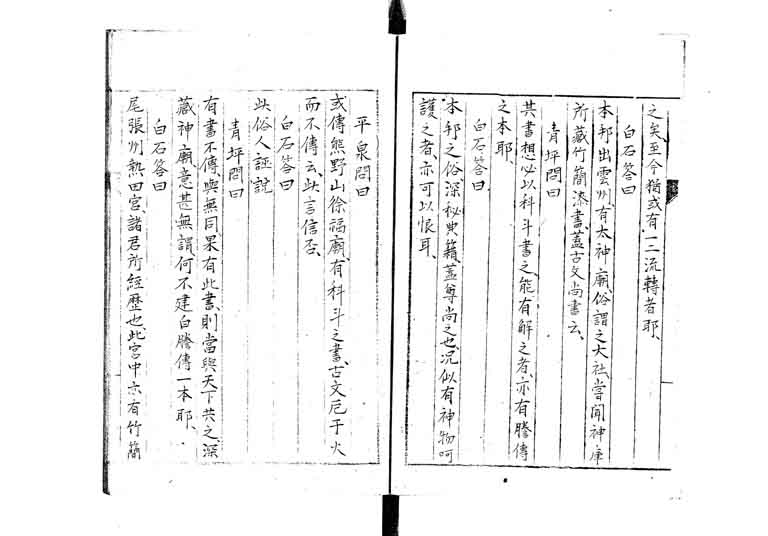 之矣至今猶或有一二流轉者耶
白石答曰
本邦出雲州有太神廟俗謂之大社嘗聞神庫
所藏竹簡漆書蓋古文尚書云
青坪問曰
其書想必以科斗書之能有解之者亦有謄傳
之本耶
白石答曰
本邦之俗深秘典籍蓋尊尚之也況似有神物呵
護之者亦可以恨耳
平泉問曰
或傳熊野山徐福廟有科斗之書古文厄于火
而不傳云此言信否
白石答曰
此俗人誣說
青坪問曰
有書不傳與無同果有此書則當與天下共之深
藏神廟意甚無謂何不建白謄傳一本耶
白石答曰
尾張州熱田宮諸君所經歷也此宮中亦有竹簡